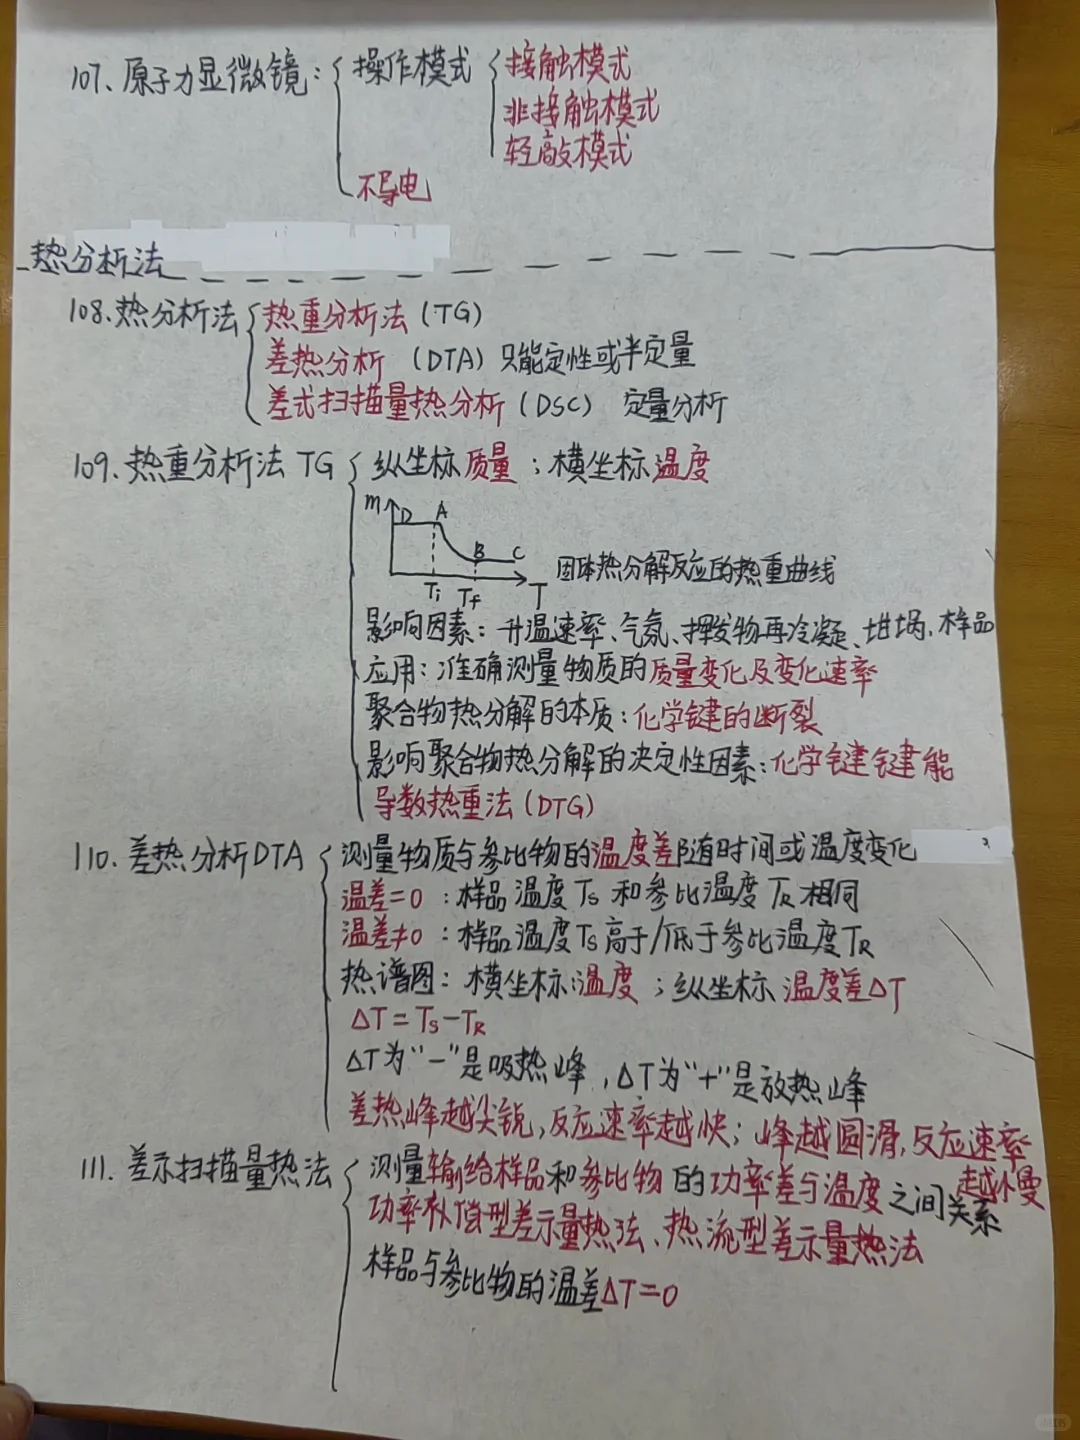 107、原子力显微镜：操作模式 接触模式
非接触模式
轻敲模式
不导电
热分析法
108.热分析法 热重分析法（TG）
差热分析（DTA）只能定性或半定量
差式扫描量热分析（DSC） 定量分析
109.热重分析法 TG 纵坐标质量；横坐标温度
m D A
B C
Ti Tf T 固体热分解反应的热重曲线
影响因素：升温速率、气氛、挥发物再冷凝、坩埚、样品
应用：准确测量物质的质量变化及变化速率
聚合物热分解的本质：化学键的断裂
影响聚合物热分解的决定性因素：化学键键能
导数热重法（DTG）
110.差热分析DTA 测量物质与参比物的温度差随时间或温度变化
温差=0：样品温度Ts和参比温度TR相同
温差≠0：样品温度Ts高于/低于参比温度TR
热谱图：横坐标:温度；纵坐标 温度差ΔT
ΔT=Ts-TR
ΔT为“-”是吸热峰，ΔT为“+”是放热峰
差热峰越尖锐,反应速率越快；峰越圆滑,反应速率
越慢
111.差示扫描量热法 测量输给样品和参比物的功率差与温度之间关系
功率补偿型差示量热法、热流型差示量热法
样品与参比物的温差ΔT=0
小红书